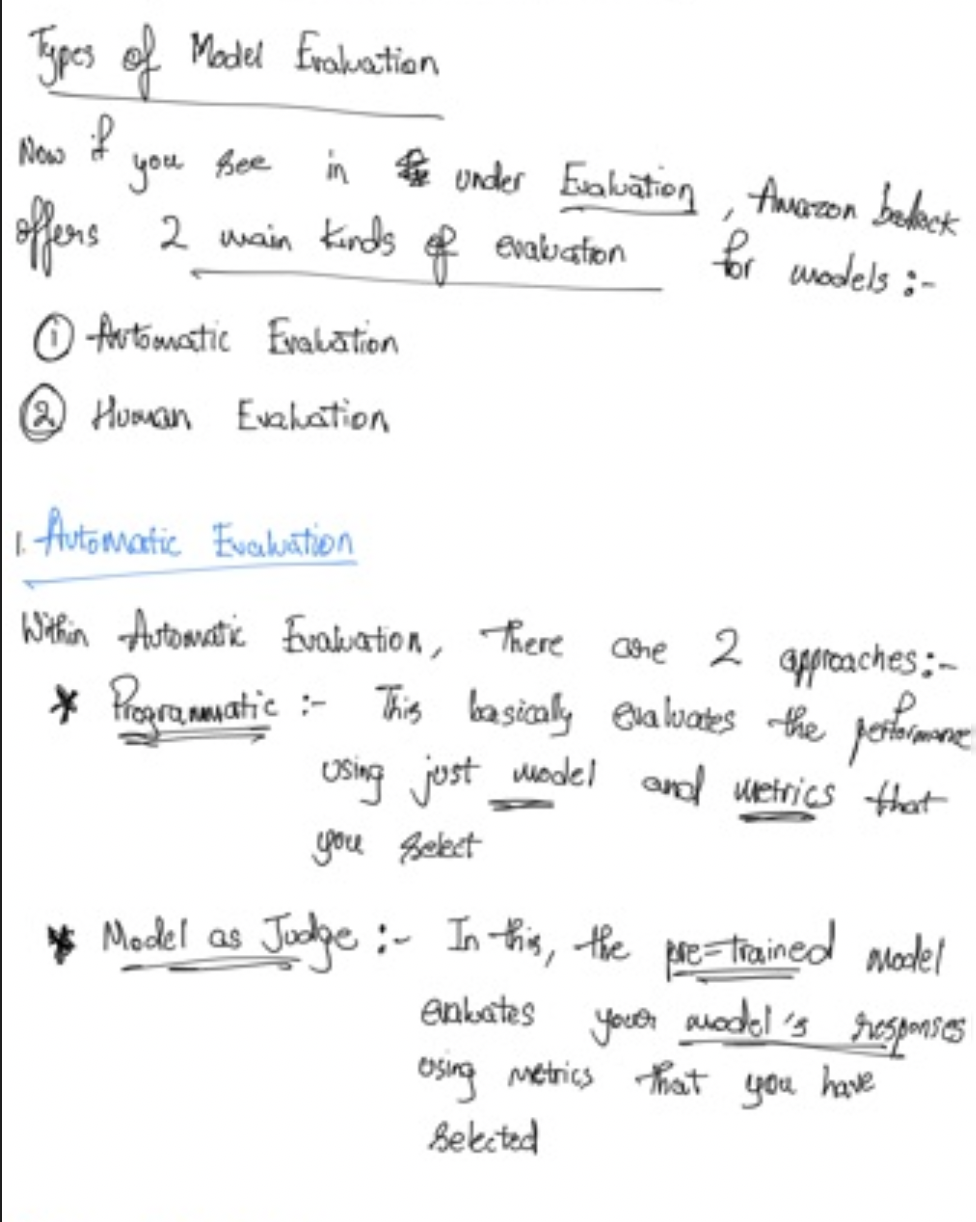 Types of Model Evaluation
Now if you see in under Evaluation, Amazon bedrock
offers 2 main kinds of evaluation for models :-
① Automatic Evaluation
② Human Evaluation
1. Automatic Evaluation
Within Automatic Evaluation, There are 2 approaches:-
* Programmatic :- This basically evaluates the performance
using just model and metrics that
you select
* Model as Judge :- In this, the pre-trained model
evaluates your model's responses
using metrics that you have
selected